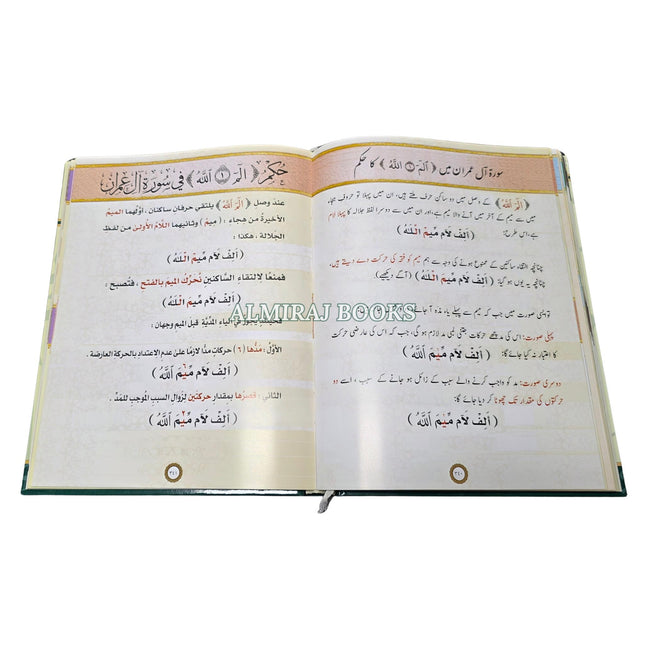 سورۃ آل عمران میں ﴿الٓمٓ ۝١ اللّٰهُ﴾ کا حکم
﴿الٓمٓ اللّٰهُ﴾ کے وصل میں دو ساکن حرف ملتے ہیں، ان میں پہلا تو حروف ہجاء
میں سے میم کے آخر میں آنے والا میم ہے، اور ان میں سے دوسرا لفظ جلالہ کا پہلا لام
ہے، اس طرح:
( أَلِفْ لَآم مِّيٓمْ اَلْلَهُ )
چنانچہ التقاء ساکنین کے ممنوع ہونے کی وجہ سے ہم میم کو فتحہ کی حرکت دے دیتے ہیں،
چنانچہ یہ یوں ہو گیا: ( أَلِفْ لَآم مِّيٓمَ اَلْلَهُ ) (آگے دیکھیے)
تو ایسی صورت میں جب کہ میم سے پہلے یاء مدہ آ جا
پہلی صورت: اس کی مدچھے حرکات جتنی لمبی لازم ہو گی، جب کہ اس کی عارضی حرکت
کا اعتبار نہ کیا جائے گا: ( أَلِفْ لَآم مِّيٓمَ ٱللَّهُ )
دوسری صورت: مد کو واجب کرنے والے سبب کے زائل ہو جانے کے سبب، اسے دو
حرکتوں کی مقدار تک چھوٹا کر دیا جائے گا:
( أَلِفْ لَآم مِّيمَ ٱللَّهُ )
٣٤٠
حُكم ﴿الٓمٓ ۝١ اللّٰهُ﴾ في سُورَة آل عِمْرَان
عند وصل ﴿الٓمٓ اللّٰهُ﴾ يلتقي حرفان ساكنان، أوّلهما الميم
الأخيرة من هجاء : ( ميم ) وثانيهما اللام الأولى من لفظ
الجلالة ، هكذا :
( أَلِفْ لَآم مِّيٓمْ اَلْلَهُ )
فمنعًا لالتقاء الساكنين نُحرِّك الميم بالفتح ، فتُصبح :
( أَلِفْ لَآم مِّيٓمَ اَلْلَهُ )
فحينئذٍ يجوز في الياء المدِّيّة قبل الميم وجهان :
الأوَّل : مدُّها (٦) حركاتٍ مدًّا لازمًا على عدم الاعتداد بالحركة العارضة .
( أَلِفْ لَآم مِّيٓمَ ٱللَّهُ )
الثاني : قصرُها بمقدار حركتين لزوال السبب الموجب للمدّ .
( أَلِفْ لَآم مِّيمَ ٱللَّهُ )
٣٤١
ALMIRAJ BOOKS